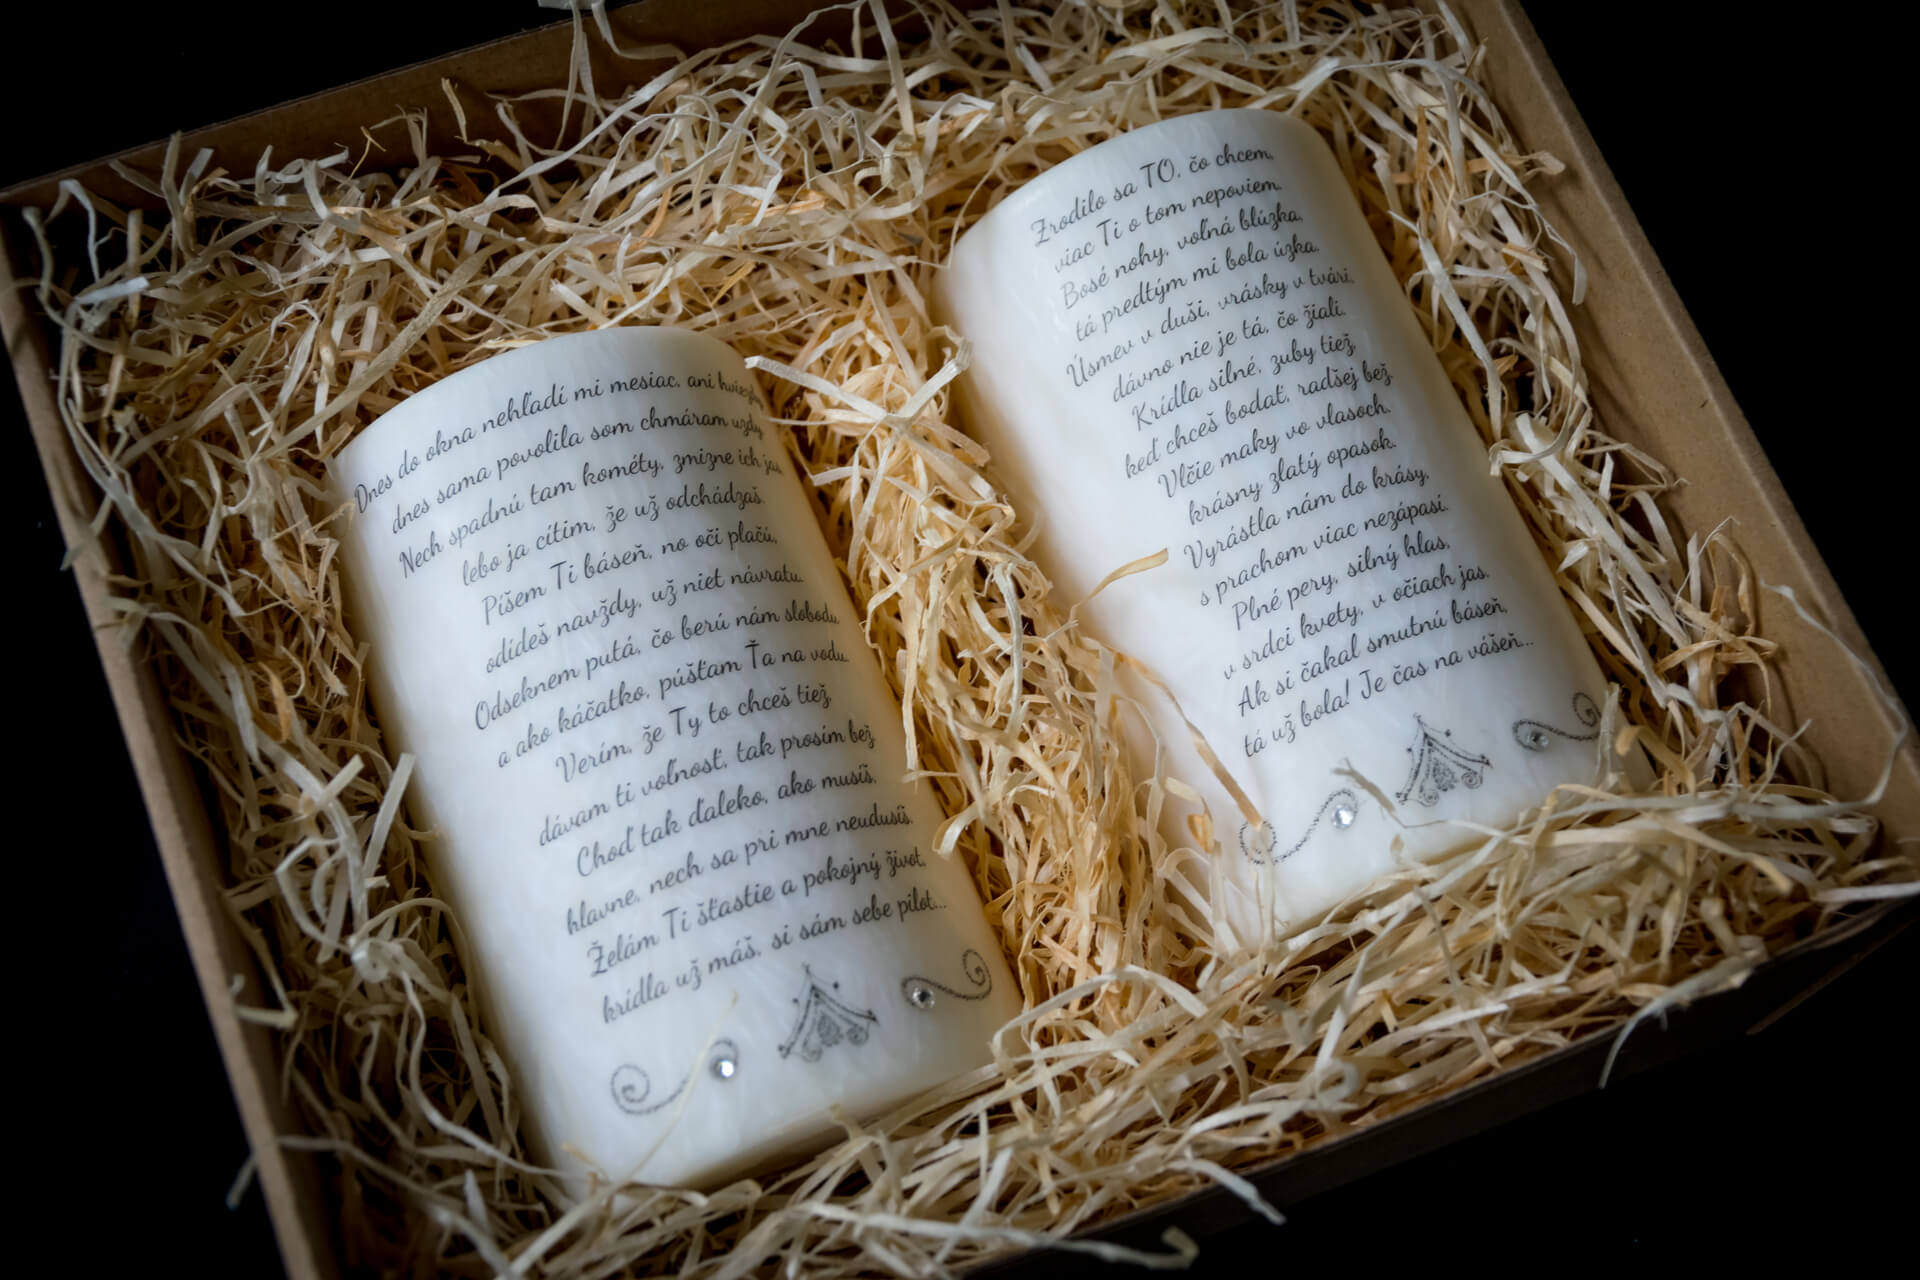 Dnes do okna nehľadí mi mesiac, ani hviezdy,
dnes sama povolila som chmáram uzdy.
Nech spadnú tam kométy, zmizne ich jas,
lebo ja cítim, že už odchádzaš.
Píšem Ti báseň, no oči plačú,
odídeš navždy, už niet návratu.
Odseknem putá, čo berú nám slobodu
a ako káčatko, púšťam Ťa na vodu.
Verím, že Ty to chceš tiež,
dávam ti voľnosť, tak prosím bež
Choď tak ďaleko, ako musíš,
hlavne, nech sa pri mne neudusíš.
Želám Ti šťastie a pokojný život,
krídla už máš, si sám sebe pilot...
Zrodilo sa TO, čo chcem,
viac Ti o tom nepoviem.
Bosé nohy, voľná blúzka,
tá predtým mi bola úzka.
Úsmev v duši, vrásky v tvári,
dávno nie je tá, čo žiali.
Krídla silné, zuby tiež,
keď chceš bodať, radšej bež.
Vlčie maky vo vlasoch,
krásny zlatý opasok.
Vyrástla nám do krásy,
s prachom viac nezápasí.
Plné pery, silný hlas,
v srdci kvety, v očiach jas.
Ak si čakal smutnú báseň,
tá už bola! Je čas na vášeň...